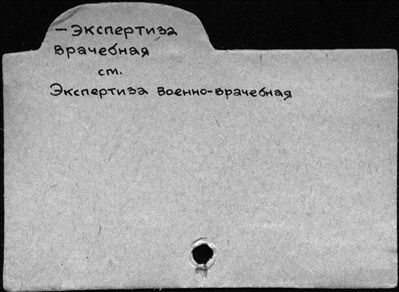 — Экспертиза
врачебная
ст.
Экспертиза военно-врачебная